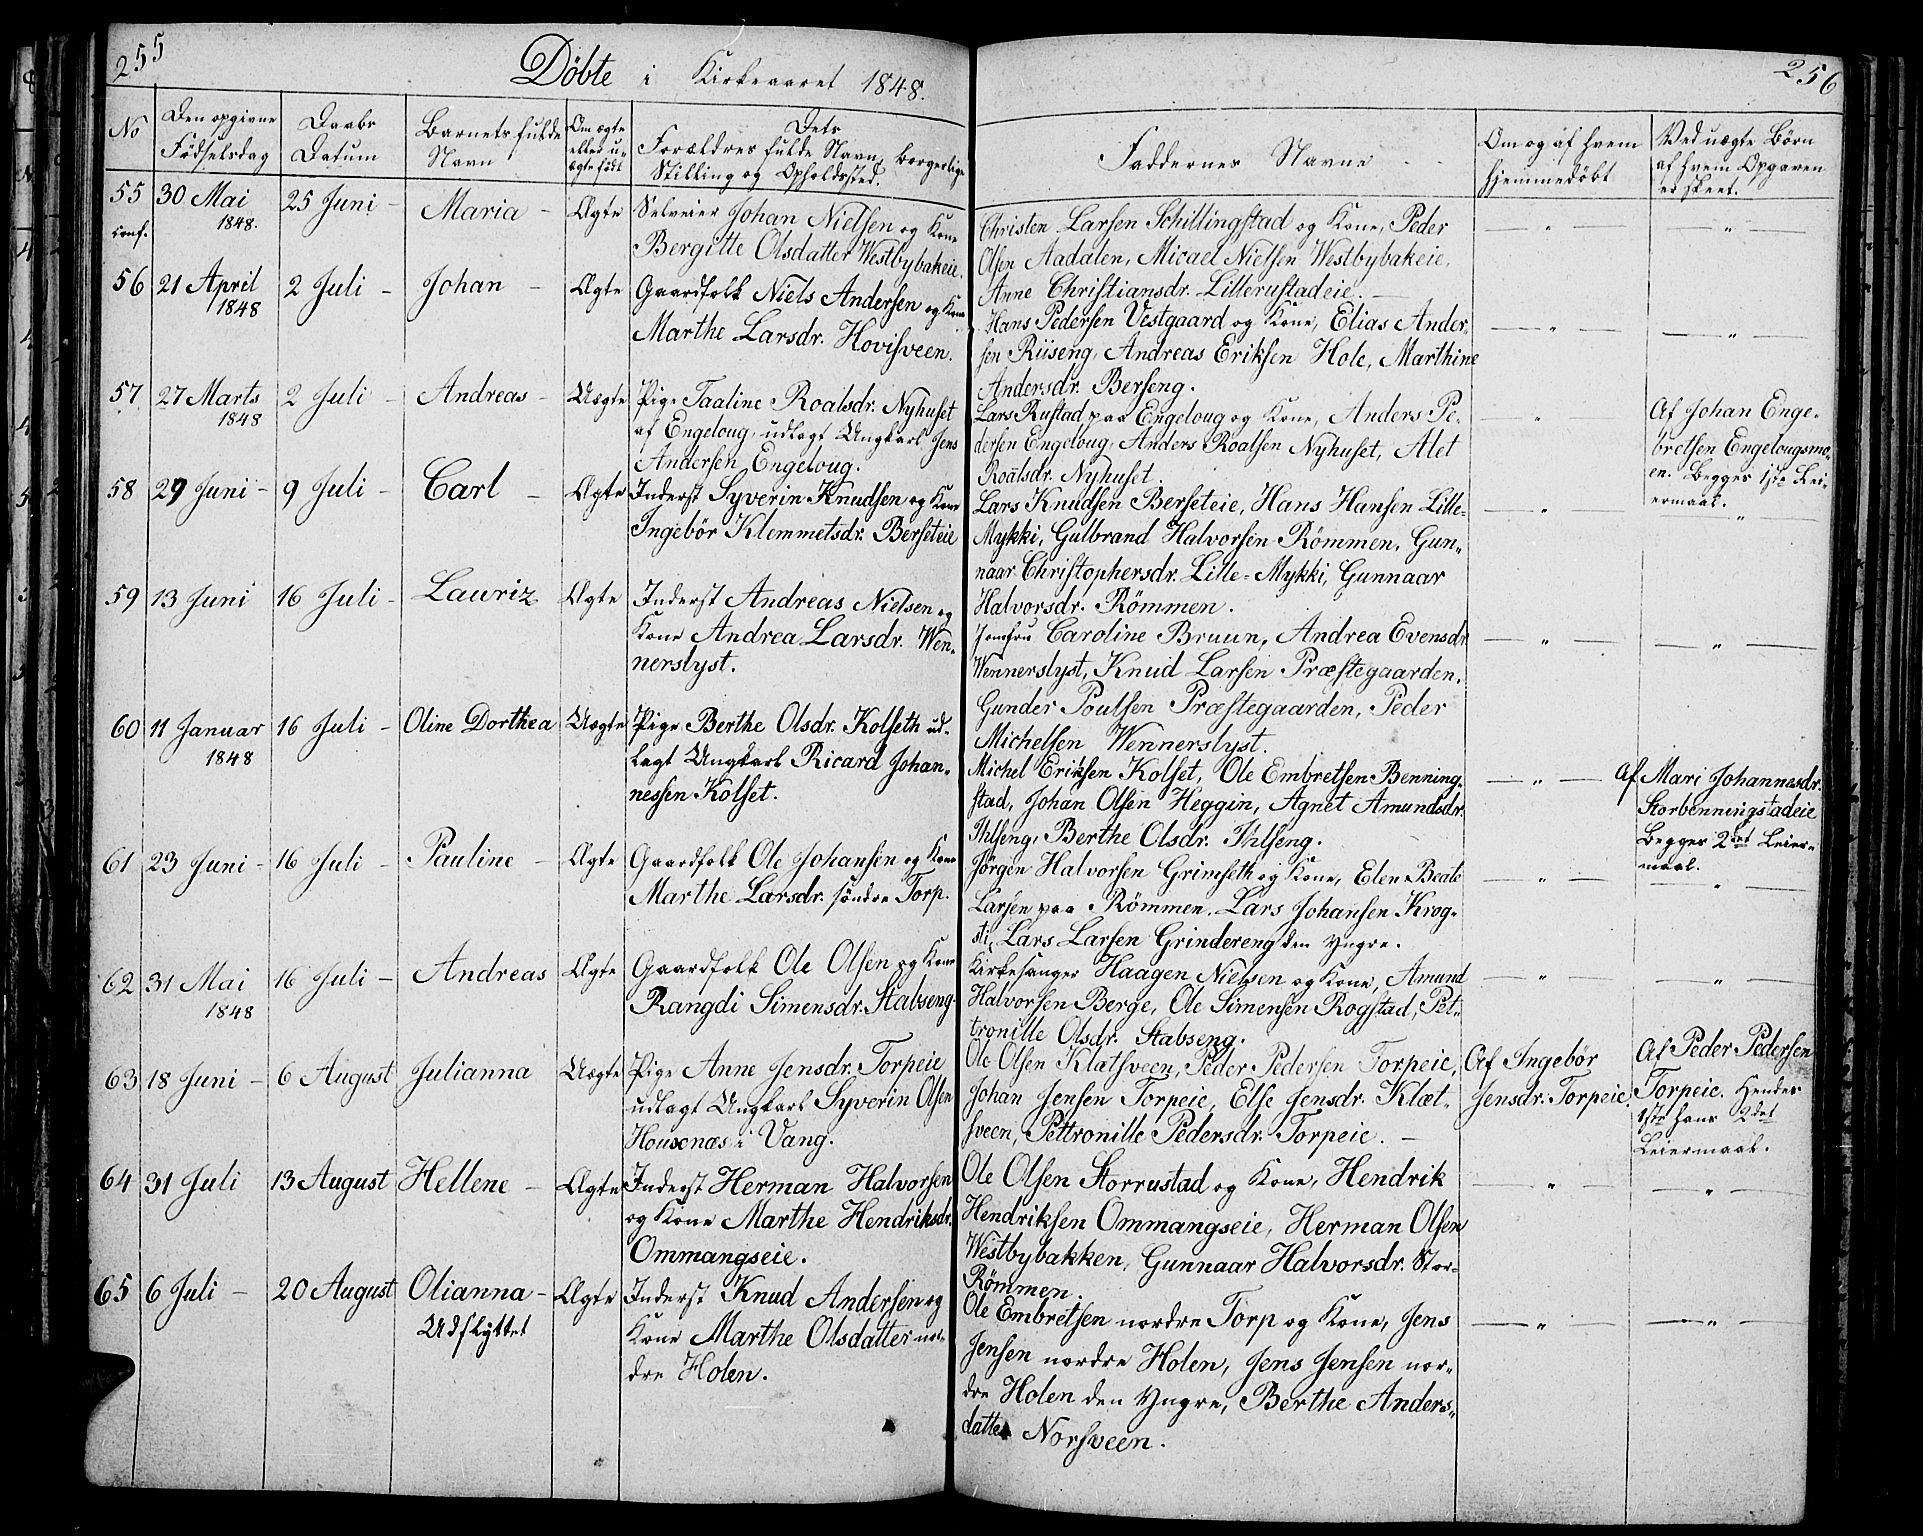 255
Döbte i Kirkeaaret 1848.
256
No
Den opgivne
Födselsdag
Daabs
Datum
Barnets fulde
Navn
Om ægte
eller u-
ægte födt
Dets
Forældres fulde Navn, borgerlige
Stilling og Opholdssted.
Faddernes Navne
Om og af hvem
hjemmedöbt
Ved uægte Börn
af hvem Opgaven
er skeet.
55 30 Mai 25 Juni - Maria - Ægte Selveier Johan Nielsen og Kone
conf. 1848.
Bergitte Olsdatter Westbybakeie.
Christen Larsen Schillingstad og Kone, Peder
Olsen Aadalen, Micael Nielsen Westbybakeie,
Anne Christiansdr. Lillerustadeie. -
— " —
— " —
56 21 April 2 Juli - Johan - Ægte Gaardfolk Niels Andersen og Kone
1848
Marthe Larsdr. Hovisveen.
Hans Pedersen Vestgaard og Kone, Elias Ander-
sen Riiseng, Andreas Eriksen Hole, Marthine
Andersdr. Berseng.
— " —
— " —
57 27 Marts 2 Juli - Andreas - Uægte Pige Taaline Roalsdr. Nyhuset
1848
af Engeloug, udlagt Ungkarl Jens
Andersen Engeloug.
Lars Rustad paa Engeloug og Kone, Anders Pe-
dersen Engeloug, Anders Roalsen Nyhuset, Alet
Roalsdr. Nyhuset.
"
Af Johan Enge-
bretsen Engelougsmo-
en. Begges 1ste Lei-
ermaal.
58 29 Juni - 9 Juli - Carl - Ægte Inderst Syverin Knudsen og Kone
Ingebör Klemmetsdr. Berseteie
Lars Knudsen Berseteie, Hans Hansen Lille-
Mykki, Gulbrand Halvorsen Römmen, Gun-
naar Christophersdr. Lille-Mykki, Gunnaar
Halvorsdr. Römmen.
— " —
— " —
59 13 Juni 16 Juli - Lauriz Ægte Inderst Andreas Nielsen og
Kone Andrea Larsdr. Wen-
nerslyst.
Jomfru Caroline Bruun, Andrea Evensdr.
Wennerslyst, Knud Larsen Præstegaarden,
Gunder Poulsen Præstegaarden, Peder
Michelsen Wennerslyst.
— " —
— " —
60 11 Januar 16 Juli - Oline Dorthea Uægte Pige Berthe Olsdr. Kolseth ud-
1848
lagt Ungkarl Ricard Johan-
nessen Kolset.
Michel Eriksen Kolset, Ole Embretsen Benning-
stad, Johan Olsen Heggin, Agnet Amundsdr.
Ihlseng, Berthe Olsdr. Ihlseng.
— " —
Af Mari Johannesdr.
Storbenningstadeie
Begges 2det Leier-
maal.
61 23 Juni - 16 Juli - Pauline - Ægte Gaardfolk Ole Johansen og Kone
Marthe Larsdr. söndre Torp.
Jörgen Halvorsen Grimseth og Kone, Elen Beate
Larsen paa Römmen. Lars Johansen Krog-
sti, Lars Larsen Grindereng den Yngre.
— " —
— " —
62 31 Mai 16 Juli - Andreas Ægte Gaardfolk Ole Olsen og Kone
1848
Rangdi Simensdr. Stabseng.
Kirkesanger Haagen Nielsen og Kone, Amund
Halvorsen Berge, Ole Simensen Rogstad, Pet-
tronille Olsdr. Stabseng.
— " —
— " —
63 18 Juni - 6 August Julianna Uægte Pige Anne Jensdr. Torpeie
udlagt Ungkarl Syverin Olsen
Housenæs i Vang.
Ole Olsen Klætsveen, Peder Pedersen Torpeie,
Johan Jensen Torpeie, Else Jensdr. Klæt-
sveen, Pettronille Pedersdr. Torpeie. -
Af Ingebör
Jensdr. Torpeie.
Af Peder Pedersen
Torpeie. Hendes
1ste hans 2det
Leiermaal.
64 31 Juli 13 August Hellene - Ægte Inderst Herman Halvorsen
og Kone Marthe Hendriksdr.
Ommangseie.
Ole Olsen Storrustad og Kone, Hendrik
Hendriksen Ommangseie, Herman Olsen
Westbybakken, Gunnaar Halvorsdr. Stor-
Römmen.
— " —
— " —
65 6 Juli - 20 August Olianna - Ægte Inderst Knud Andersen og
Udflyttet
Kone Marthe Olsdatter nor-
dre Holen.
Ole Embretsen nordre Torp og Kone, Jens
Jensen nordre Holen, Jens Jensen nor-
dre Holen den Yngre, Berthe Anders-
datter Norsveen.
— " —
— " —